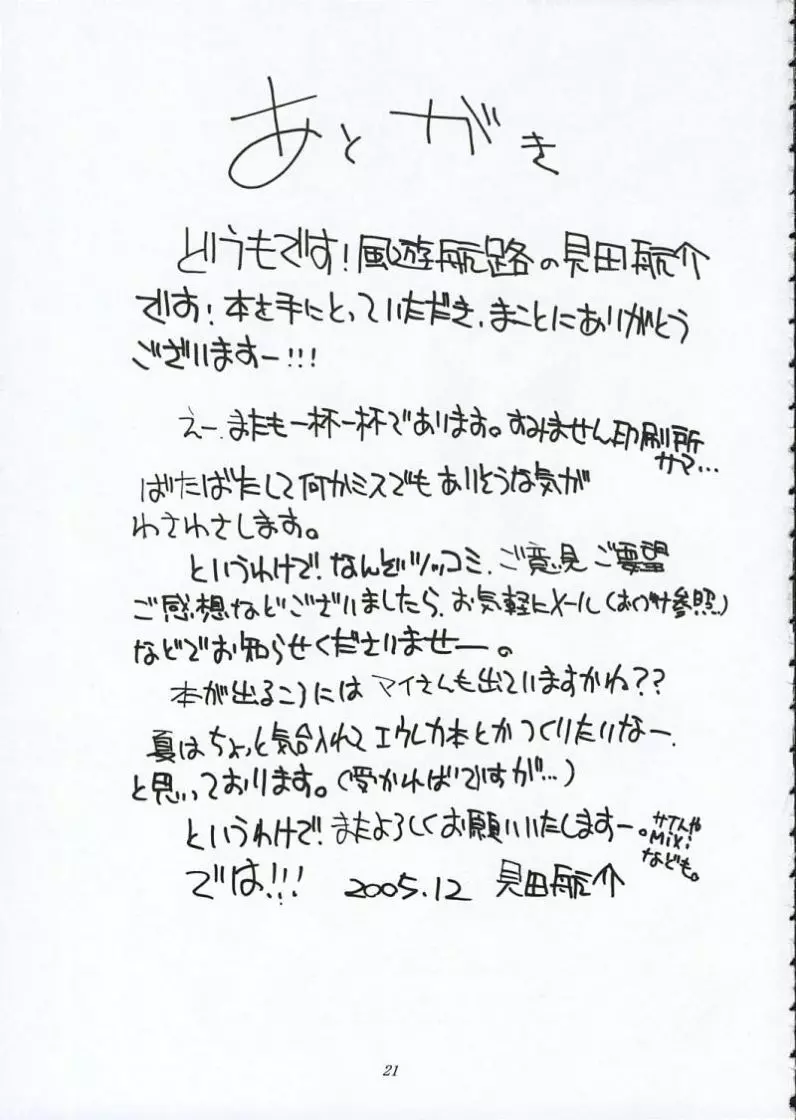 あとがき
どうもです！風遊航路の見田航介
です！本を手にとっていただき、まことにありがとう
ございますー!!!
えー、またも一杯一杯であります。すみません印刷所
サマ…
ばたばたして何かミスでもありそうな気が
わさわさします。
というわけで！なんぞツッコミ、ご意見ご要望
ご感想などございましたら、お気軽にメール(おくづけ参照)
などでお知らせくださいませー。
本が出るころにはマイさんも出ていますかね??
夏はちょっと気合入れてエウレカ本とかつくりたいなー、
と思いっております。(受かればですが…)
というわけで！またよろしくお願いいたしますー。
サイトや
Mixi
なども。
では!!! 2005.12 見田航介
21